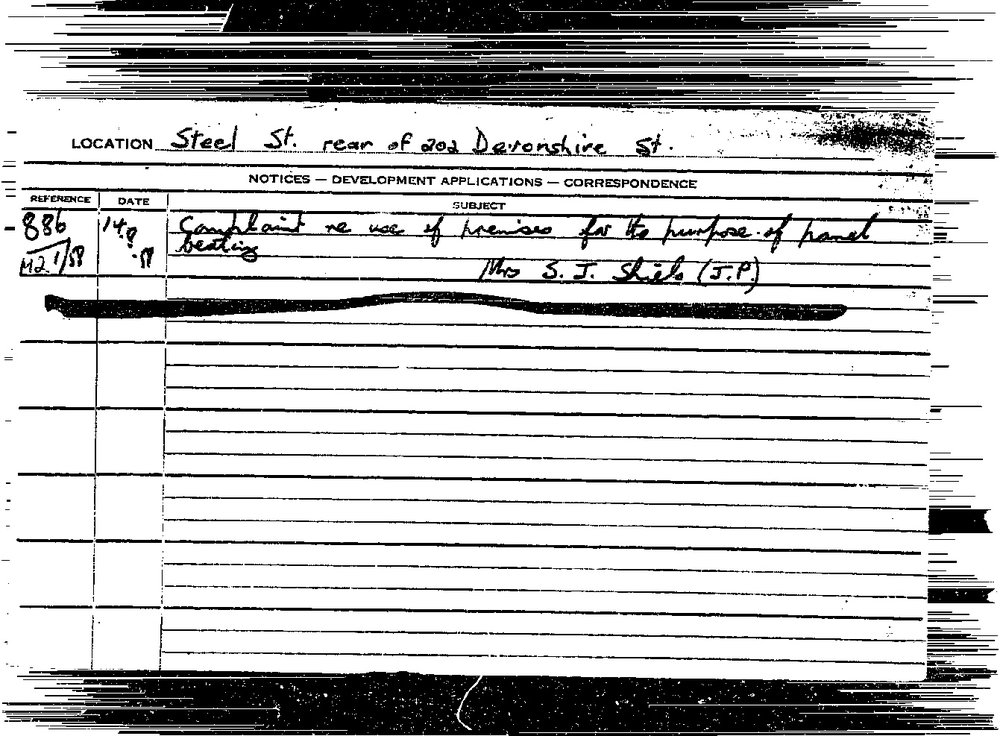 LOCATION Steel St. rear of 202 Devonshire St.
NOTICES — DEVELOPMENT APPLICATIONS — CORRESPONDENCE
REFERENCE DATE SUBJECT
886 14.8 Complaint re use of premises for the purpose of panel
M2 1/58 .58 beating
Mrs S. J. Shiels (J.P.)